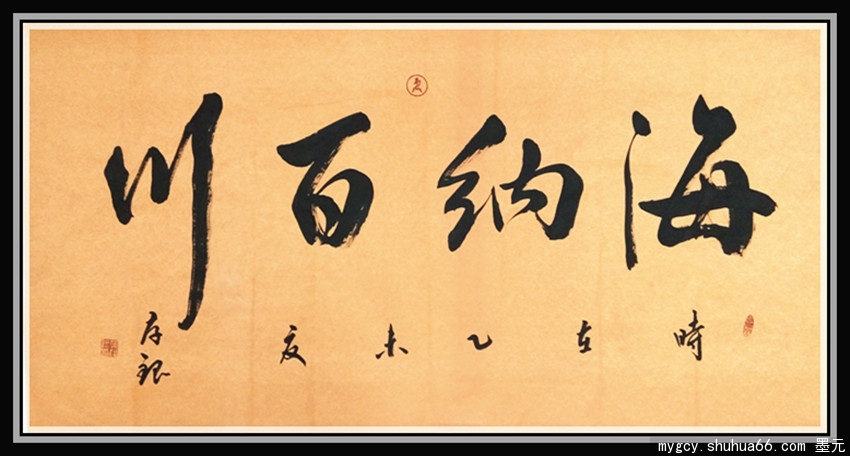 海纳百川
時在乙未夏
存银
mygcy.shuhua66.com 墨元